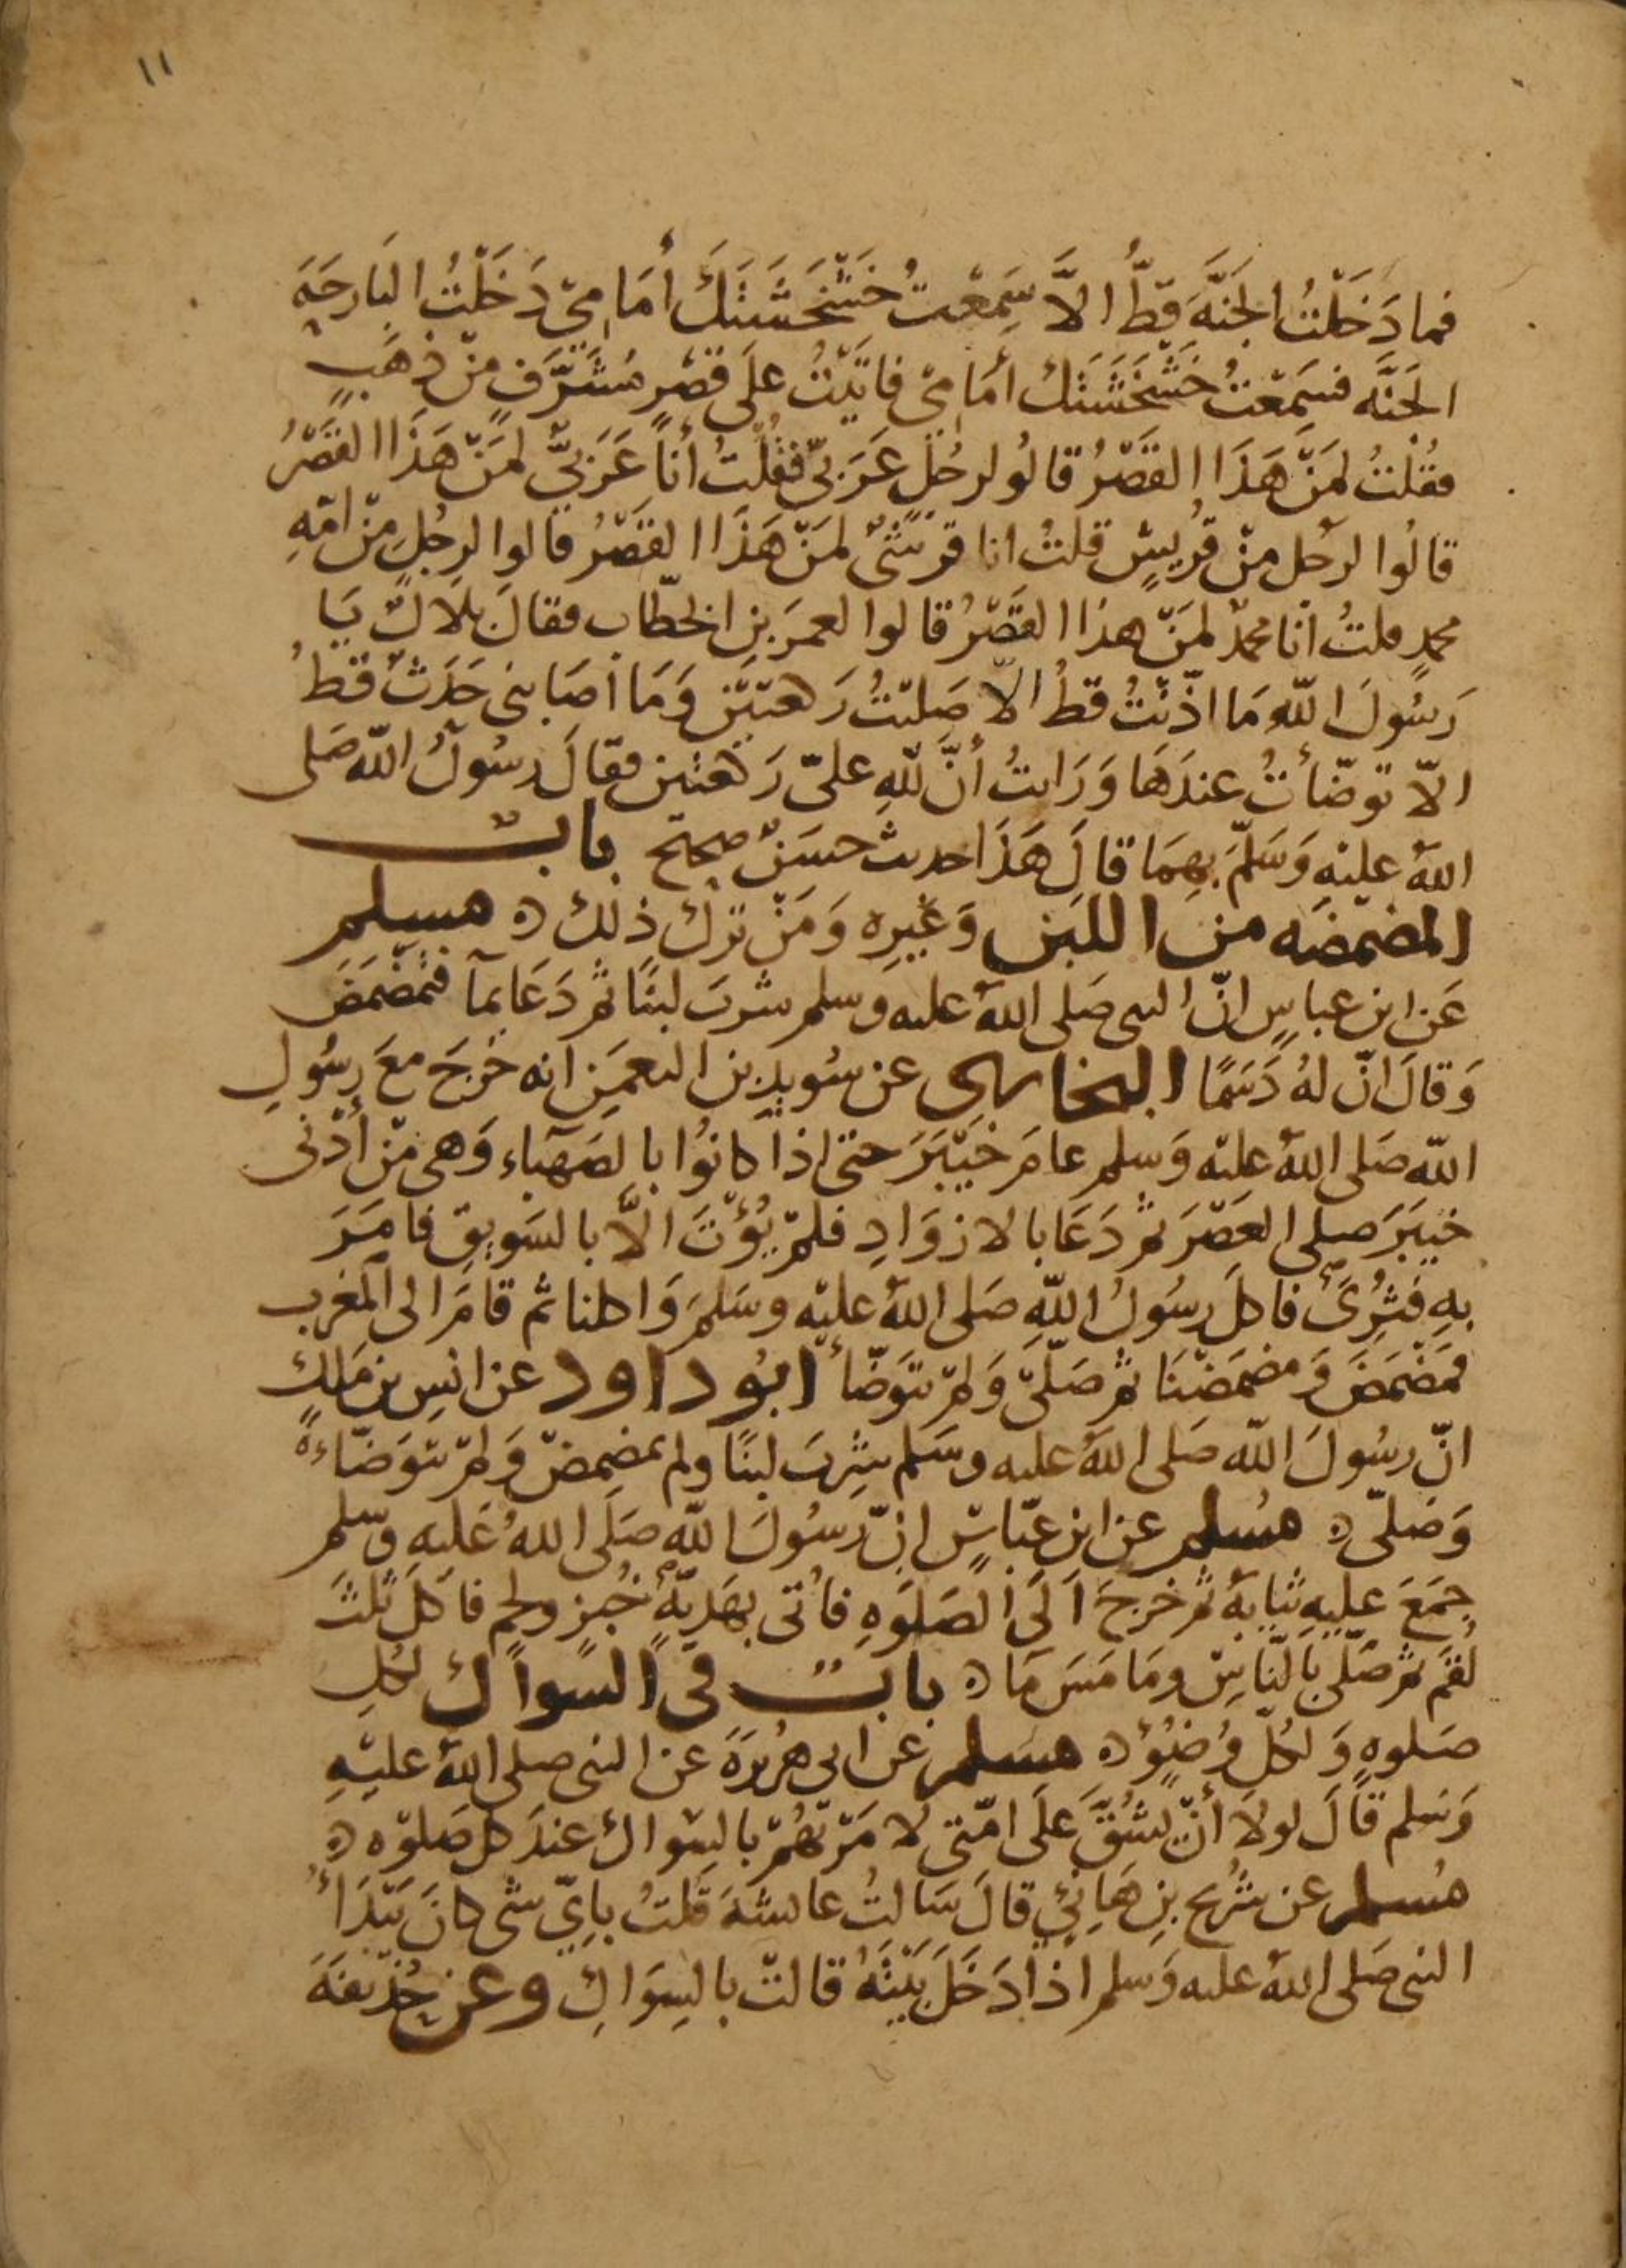 ١١
فما دَخَلْتُ الجَنَّهَ قَطُّ الاَّ سَمِعْتُ خَشْخَشَتَكَ أمَامِيْ دَخَلْتُ البَارحَهَ
الجَنَّه فسَمِعْتُ خَشْخَشَتَك أمَامِىْ فاتَيْتُ عَلَى قَصْرٍ مُشَرَّفٍ مِنْ ذهَبٍ
فقُلْتُ لمَنْ هَذَا القَصْرُ قالُو لرجُلٍ عَرَبيٍّ فقُلْتُ أنَا عَرَبيٌّ لمَنْ هَذَا القَصْرُ
قالُوا لرجُل مِنْ قُرَيشٍ قلتُ انا قرشىٌّ لمَنْ هَذَا القَصْرُ قالوا لرجُلٍ مِنْ امّهِ
محمدٍ قلتُ أنا محمدٌ لمَنْ هذا القَصْرُ قالوا لعمرَ بنِ الخطّاب فقالَ بلالٌ يَا
رَسُولَ اللهِ مَا اذّنْتُ قطُ الاّ صَليْتُ رَكعتَيْنِ وَمَا أصَابنى حَدَثٌ قَطُ
الاّ توضّأتُ عندَهَا وَرَايتُ أنَّ للهِ علىّ رَكعتين فقالَ رسُولُ اللهِ صَلى
اللهُ عليْهِ وَسَلّمَ بهِمَا قالَ هَذَا حديث حسَنٌ صحيح باب
المضمضه من اللبن وَغيرِه وَمَنْ تركَ ذلكَ ه مسلم
عَن ابن عباسٍ انّ النبى صَلى اللهُ عليه وسلم شربَ لبنًا ثم دَعَا بمآ فتمَضْمَضَ
وَقالَ انّ لهُ دَسَمًا البخارى عن سُويدِ بن النعمَن انه خَرجَ معَ رسُولِ
اللهِ صَلى اللهُ عليْه وَسلم عامَ خيْبَرَ حتى اذا كانُوا بالصَهباء وَهى مِنْ أدْنى
خيبَرَ صلى العَصْرَ ثم دَعَا بالازوَادِ فلمْ يُؤْتَ الاَّ بالسَويقِ فامَرَ
بهِ فَثُرِّىَ فاكلَ رسُولُ اللهِ صَلى اللهُ عليْه وسَلمَ وَاكلنا ثم قامَ الى المغْرب
فمضْمَضَ وَمضمَضْنَا ثم صَلّىْ وَلمْ يتوَضّأ ابُو داود عن انسِ بن مَالكٍ
انّ رسُولَ الله صَلى اللهُ عليه وسَلم شربَ لبنًا ولم يمضمضْ وَلمْ يتوَضّاء ه
وَصَلىّ ه مُسْلم عن ابن عبّاسٍ انّ رَسُولَ الله صَلَى اللهُ عَليهِ وسَلم
جمَعَ عليهِ ثيابهُ ثم خرجَ الَى الصَلَوهِ فاُتى بهَديّهٍ خُبزٍ ولحم فاكلَ ثلثَ
لُقَم ثم صَلّى بالنّاسِ ومَا مَسَ مَا ه باب فى السواك لكُلِ
صَلوهٍ وَلكُلِّ وُضُوْءٍ ه مسلم عن ابى هُرَيرَةَ عن النبى صلى اللهُ عليْهِ
وَسَلم قالَ لولا أنْ يشُقَّ عَلَى امّتى لامَرْتهُمْ بالسِواك عندَ كل صَلوه ه
مُسلم عن شُرَيحِ بنِ هَانئٍ قالَ سَالتُ عايشهَ قُلتُ بايِّ شى كانَ يَبْدَأُ
النبى صَلى اللهُ عليه وَسلم اذا دَخَلَ بَيْتَهُ قالتْ بالسِوَاكِ وعن حُذيفهَ